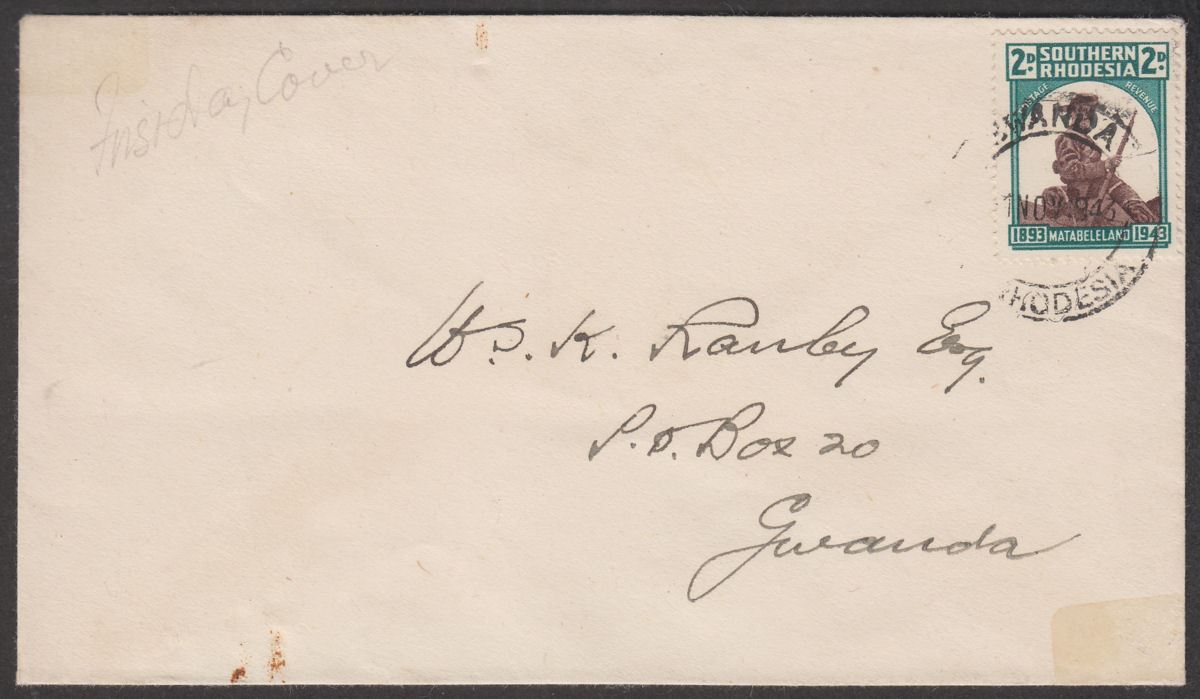 First day Cover
2D. SOUTHERN RHODESIA 2D.
POSTAGE REVENUE
GWANDA
1 NOV 1943
1893 MATABELELAND 1943
RHODESIA
K. Ranby Esq.
P.O. Box 20
Gwanda